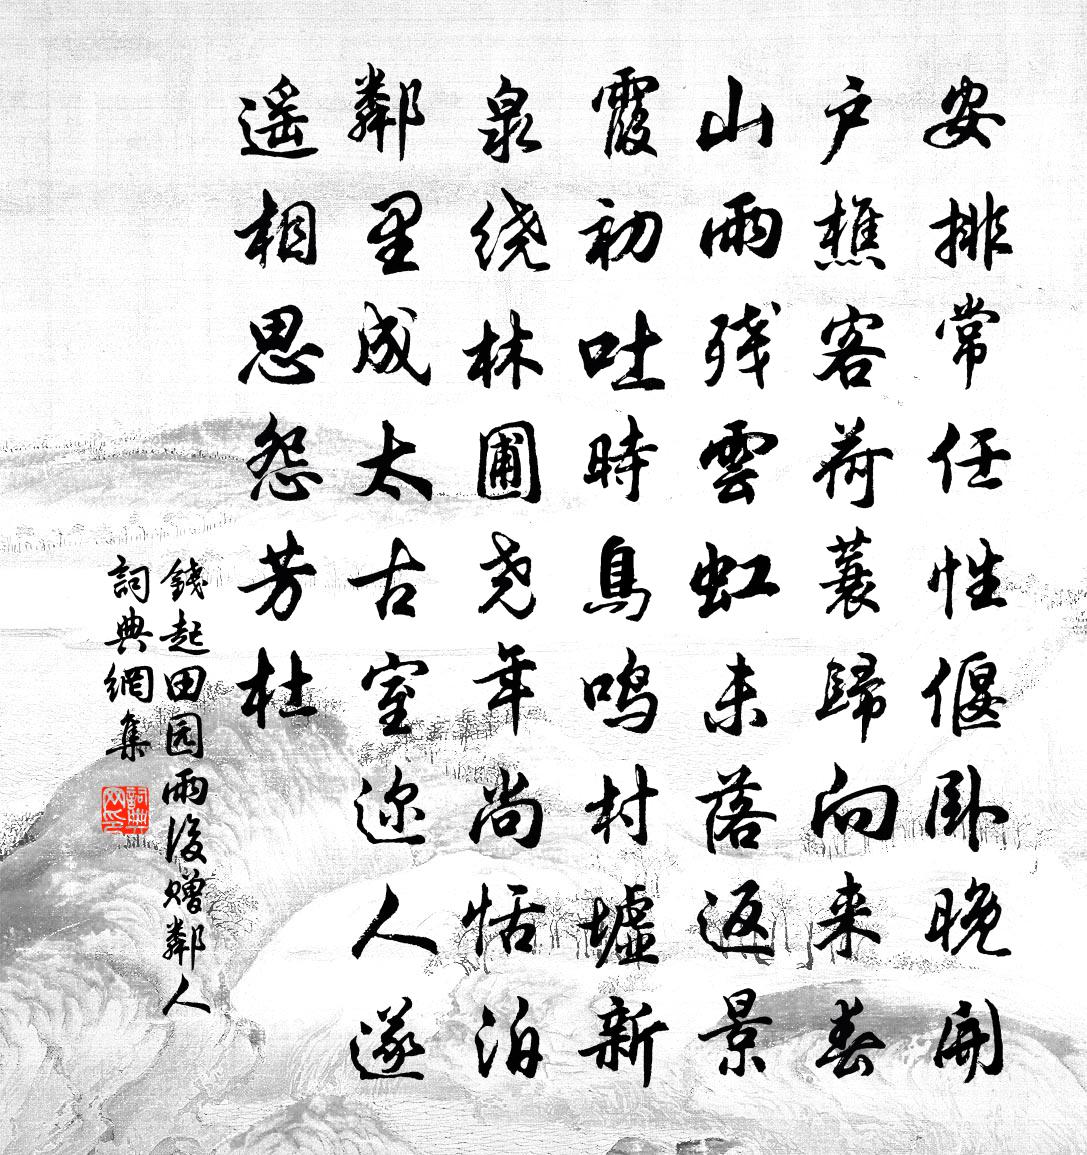 安排常任性偃卧晚開
户樵客荷蓑歸向来春
山雨残雲虹未落返景
霞初吐時鳥鳴村墟新
泉绕林圃尧年尚恬泊
鄰里成太古室迩人遂
遥相思怨芳杜
錢起田园雨後赠鄰人
詞典網集